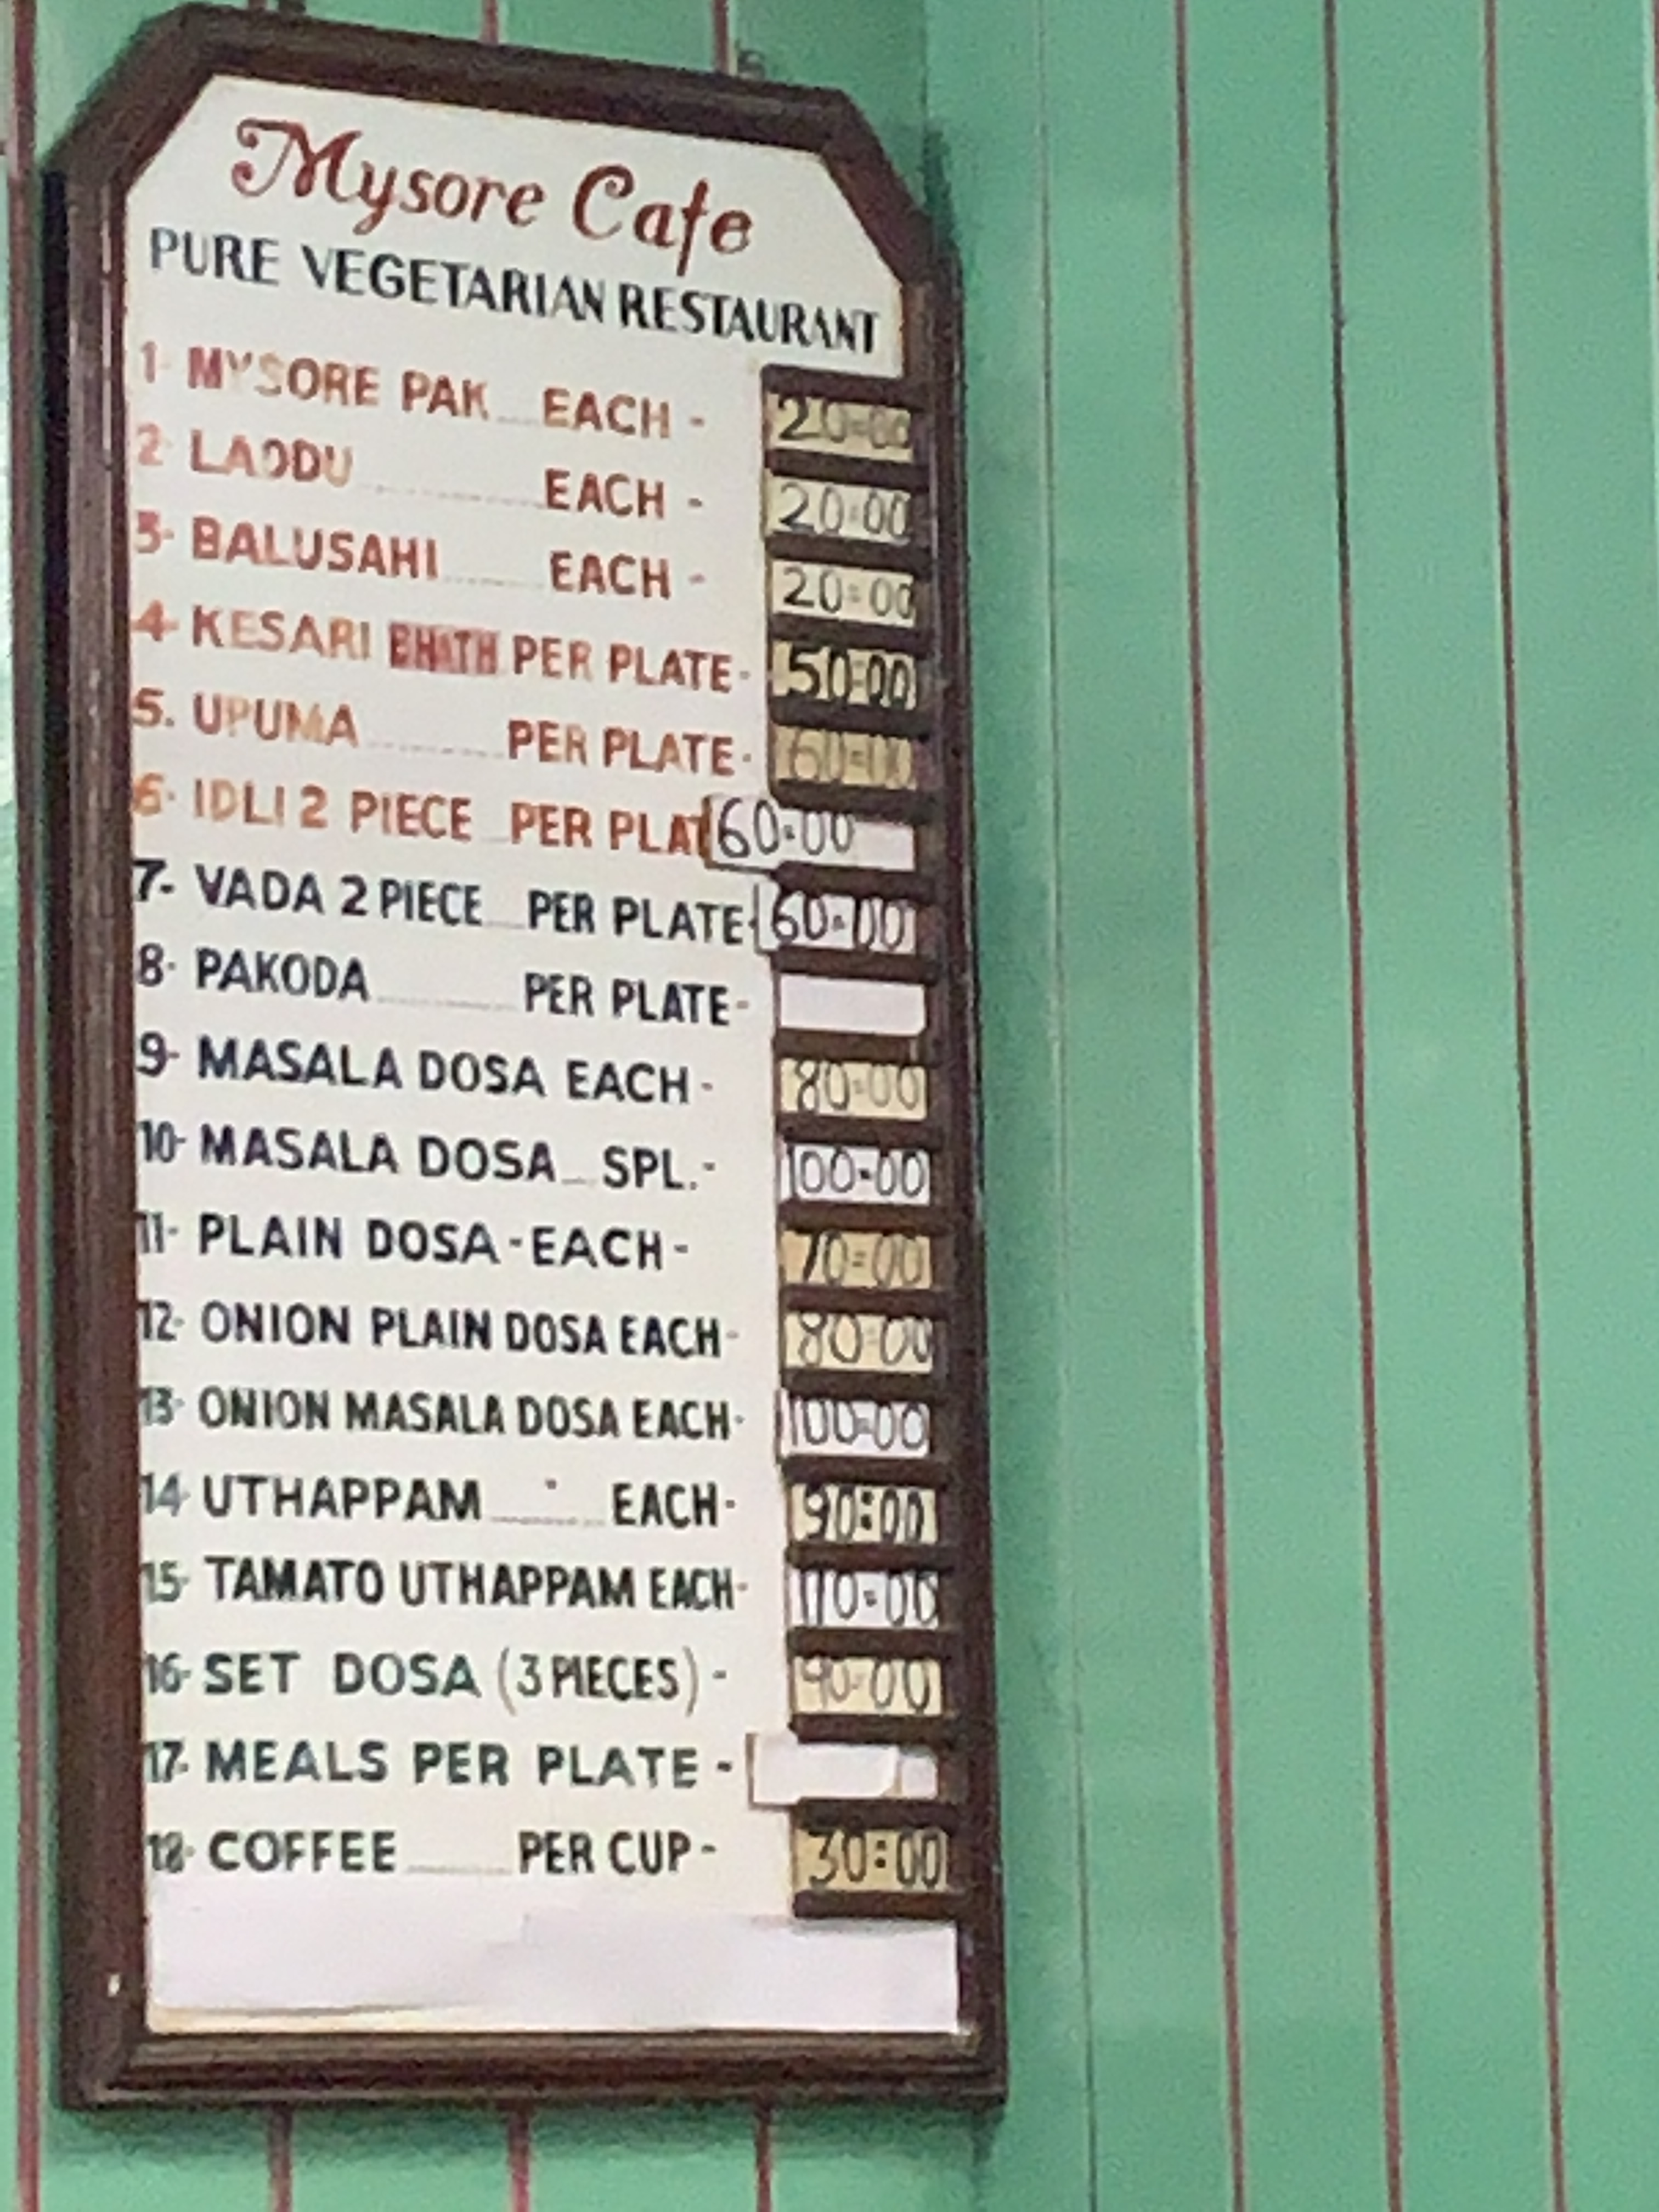 Mysore Cafe
PURE VEGETARIAN RESTAURANT
1- MYSORE PAK EACH - 20=00
2- LADDU EACH - 20=00
3- BALUSAHI EACH - 20=00
4- KESARI BHATH PER PLATE- 50=00
5. UPUMA PER PLATE- 60=00
6- IDLI 2 PIECE PER PLAT 60=00
7- VADA 2 PIECE PER PLATE- 60=00
8- PAKODA PER PLATE-
9- MASALA DOSA EACH - 80=00
10- MASALA DOSA SPL.- 100=00
11- PLAIN DOSA - EACH - 70=00
12- ONION PLAIN DOSA EACH- 80=00
13- ONION MASALA DOSA EACH- 100=00
14 UTHAPPAM EACH- 90:00
15- TAMATO UTHAPPAM EACH- 110=00
16- SET DOSA (3 PIECES) - 90=00
17- MEALS PER PLATE -
18- COFFEE PER CUP - 30:00